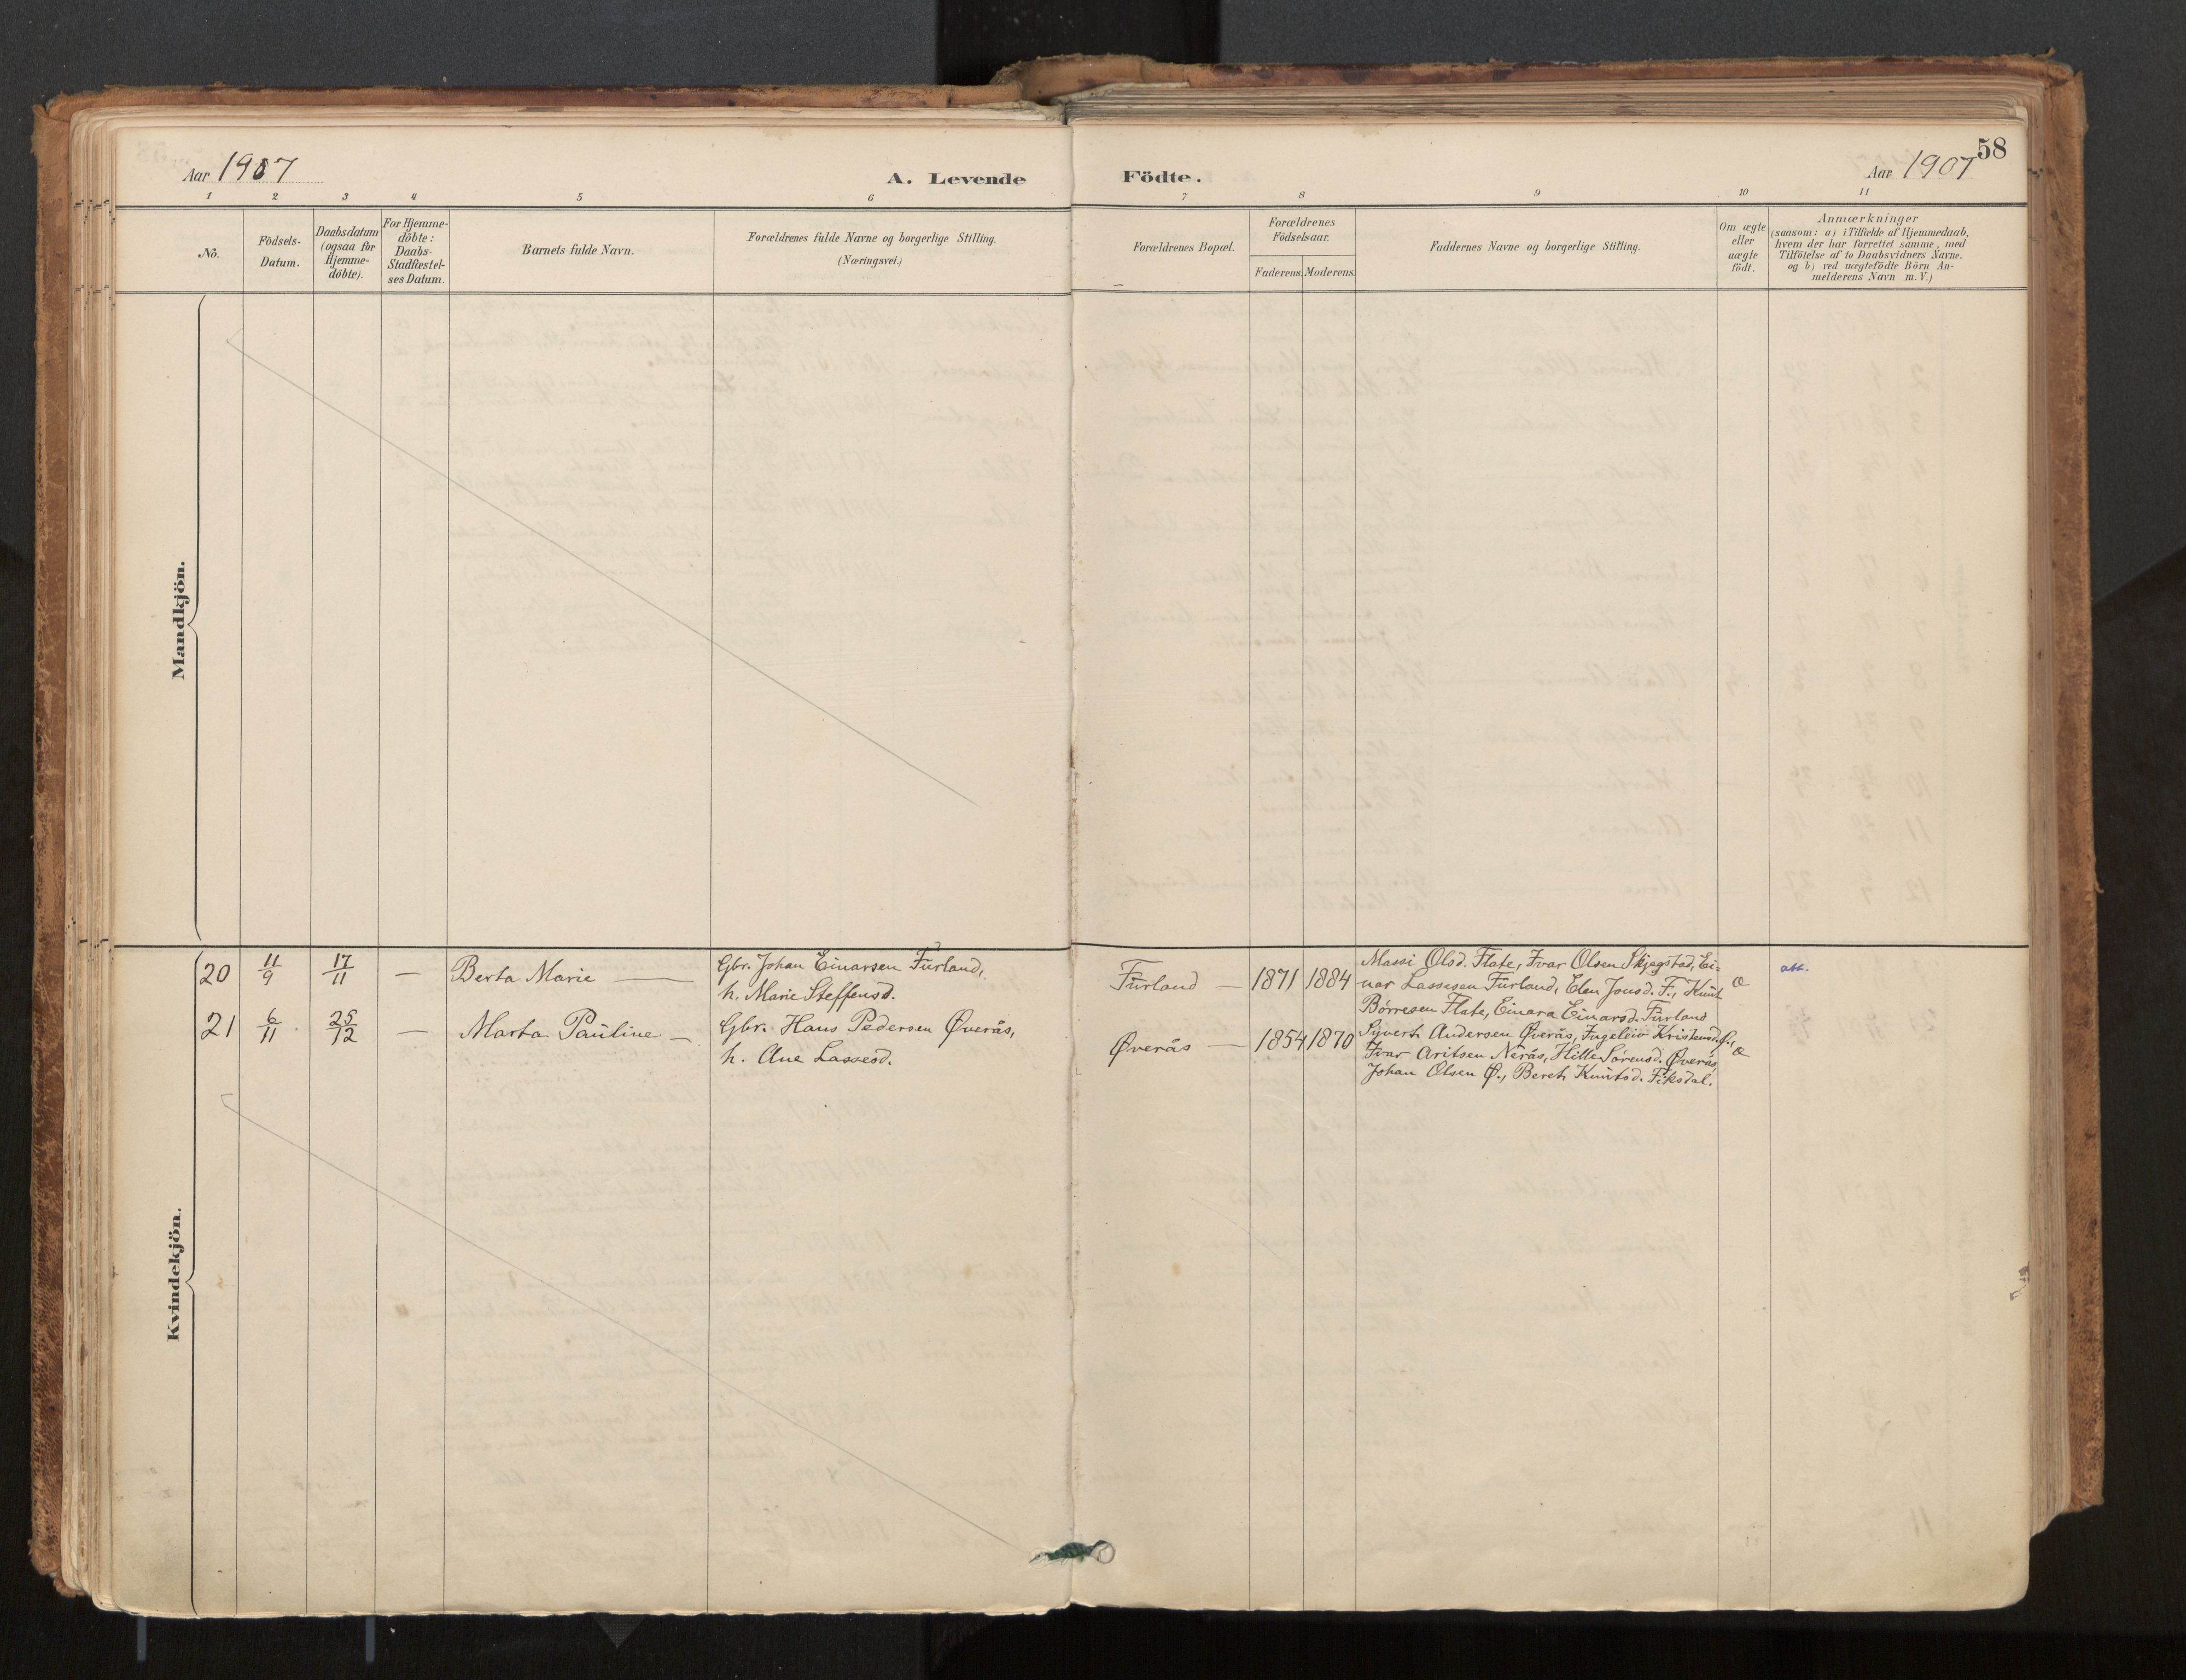 Aar 1907
A. Levende
Födte.
Aar 1907
58
1 2 3 4 5 6 7 8 9 10 11
No.
Födsels-
Datum.
Daabsdatum
(ogsaa for
Hjemme-
döbte).
For Hjemme-
döbte:
Daabs-
Stadfæstel-
ses Datum.
Barnets fulde Navn.
Forældrenes fulde Navne og borgerlige Stilling.
(Næringsvei.)
Forældrenes Bopæl.
Forældrenes
Födselsaar.
Faderens. Moderens.
Faddernes Navne og borgerlige Stilling.
Om ægte
eller
uægte
födt.
Anmærkninger
(saasom: a) i Tilfælde af Hjemmedaab,
hvem der har forrettet samme, med
Tilföielse af to Daabsvidners Navne,
og b) ved uægtefödte Börn An-
melderens Navn m.V.)
Mandkjön.
Kvindekjön.
20 11/9 17/11 — Berta Marie —
Gbr. Johan Einarsen Fürland,
h. Marie Steffensd.
Fürland — 1871 1884
Massi Olsd. Flate, Ivar Olsen Skjegstad, Ei=
nar Lassesen Fürland, Elen Jonsd. F., Knüt
Børresen Flate, Einara Einarsd. Fürland
Æ
att.
21 6/11 25/12 — Marta Paüline —
Gbr. Hans Pedersen Øverås,
h. Ane Lassesd.
Øverås — 1854 1870
Syvert Andersen Øverås, Ingeleiv Kristensd.
Ivar Aritsen Nerås, Hille Sörensd. Øverås,
Johan Olsen Ø., Beret Knütsd. Fiksdal.
Æ